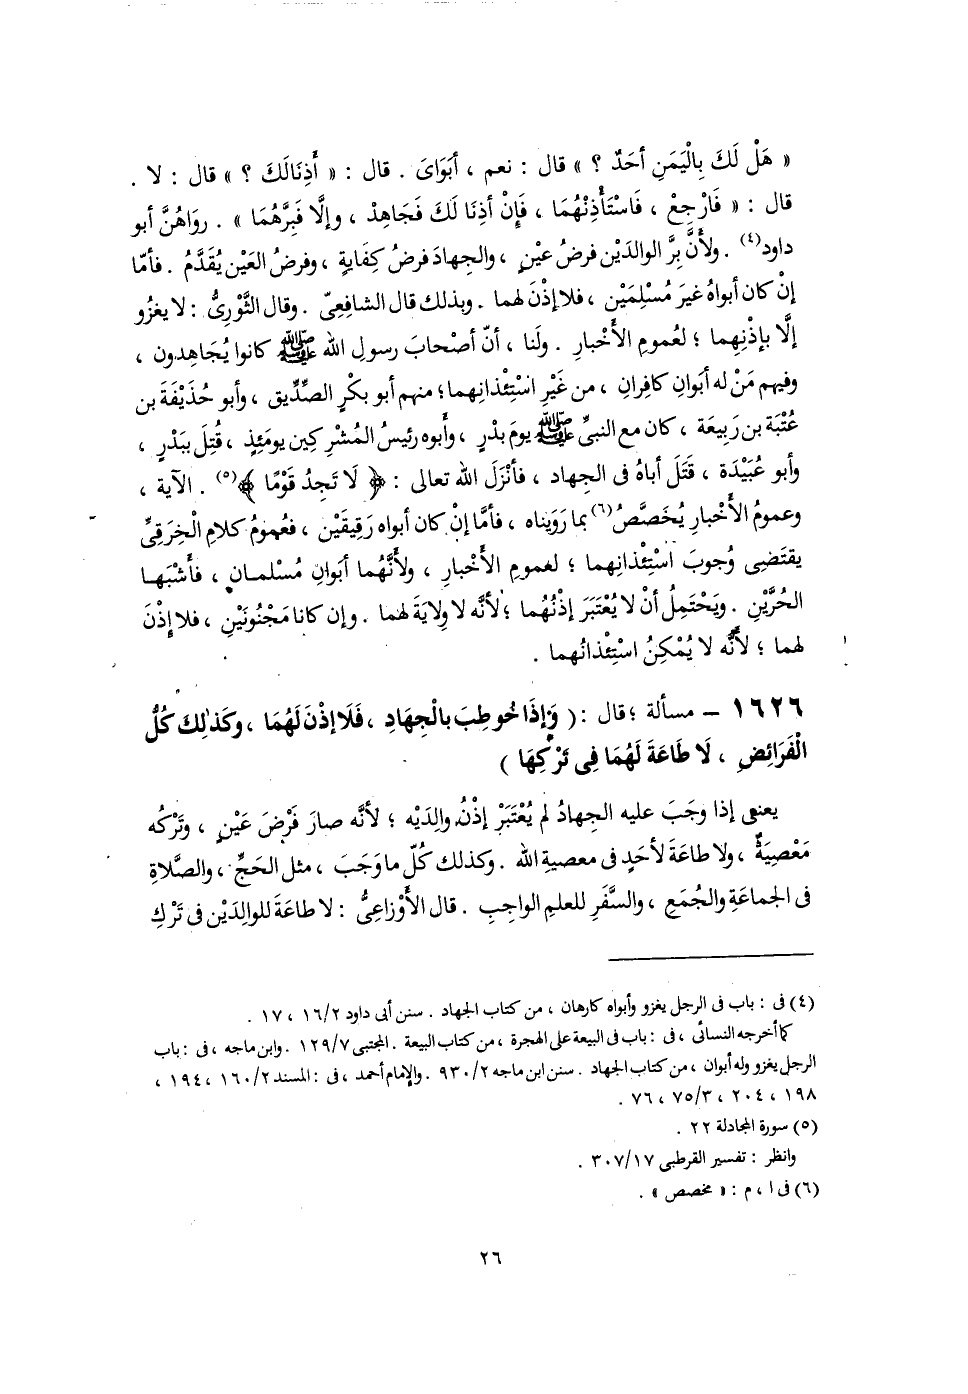 « هَلْ لَكَ بِالْيَمَنِ أحَدٌ ؟ » قال : نعم ، أبَوَاىَ . قال : « أَذِنَا لَكَ ؟ » قال : لا .
قال : « فَارْجِعْ ، فَاسْتَأْذِنْهُمَا ، فَإِنْ أذِنَا لَكَ فَجَاهِدْ ، وإلَّا فَبَرَّهُمَا » . روَاهُنَّ أبو
داود(٤) . ولأنَّ بِرَّ الوالدَيْن فرضُ عَيْنٍ ، والجهادَ فرضُ كِفَايةٍ ، وفرضُ العَيْن يُقَدَّمُ . فأمّا
إنْ كان أبواهُ غيرَ مُسْلِمَيْن ، فلا إذْنَ لهما . وبذلك قال الشافِعِىّ . وقال الثَّوْرِىُّ : لا يغزُو
إلَّا بإذْنِهِما ؛ لعُمومِ الأَخْبارِ . ولَنا ، أنّ أصْحابَ رسولِ الله ﷺ كانوا يُجَاهِدون ،
وفيهم مَنْ له أبَوانِ كافِران ، من غَيْرِ اسْتِئْذانِهما؛ منهم أبو بكْرٍ الصِّدِّيق ، وأبو حُذَيْفَةَ بن
عُتْبَة بن رَبِيعَة ، كان مع النبىِّ ﷺ يومَ بدْرٍ ، وأبوه رئيسُ المُشْرِكِين يومَئِذٍ ، قُتِلَ ببَدْرٍ ،
وأبو عُبَيْدَة ، قَتَلَ أباهُ فى الجهاد ، فأنْزَلَ الله تعالى : ﴿ لَا تَجِدُ قَوْمًا ﴾(٥) . الآية ،
وعمومُ الأَخْبارِ يُخَصَّصُ(٦) بما رَوَيناه ، فأمَّا إنْ كان أبواه رَقِيقَيْن ، فعُمومُ كلامِ الْخِرَقِىِّ
يقتَضِى وُجوبَ اسْتِئْذانِهما ؛ لعمومِ الأَخْبارِ ، ولأَنَّهُما أبَوانِ مُسْلمـانِ ، فأَشْبَهـا
الحُرَّيْنِ . ويَحْتَمِلُ أنْ لا يُعْتَبَرَ إذْنُهُما ؛ لأنَّه لا وِلايَةَ لهما . وإن كانا مَجْنُونَيْنِ ، فلا إذْنَ
لهما ؛ لأنَّه لا يُمْكِنُ اسْتِئْذانُهما .
١٦٢٦ – مسألة ؛ قال : ( وَإذَا خُوطِبَ بالْجِهَادِ ، فَلَا إذْنَ لَهُمَا ، وكَذٰلِكَ كُلُّ
الْفَرَائِضِ ، لَا طَاعَةَ لَهُمَا فِى تَرْكِهَا )
يعنى إذا وجَبَ عليه الجهادُ لم يُعْتَبَرْ إذْنُ والِدَيْه ؛ لأنَّه صارَ فَرْضَ عَيْنٍ ، وتَرْكُه
مَعْصِيَةٌ ، ولا طاعَةَ لأحَدٍ فى معصيةِ الله . وكذلك كُلّ ما وَجَبَ ، مثل الحَجِّ ، والصَّلاةِ
فى الجماعَةِ والجُمَعِ ، والسَّفَرِ للعلمِ الواجِبِ . قال الأَوْزاعِىُّ : لا طاعَةَ للوالِدَيْن فى تَرْكِ
(٤) فى : باب فى الرجل يغزو وأبواه كارهان ، من كتاب الجهاد . سنن أبى داود ٢/ ١٦ ، ١٧ .
كما أخرجه النسائى ، فى : باب فى البيعة على الهجرة ، من كتاب البيعة . المجتبى ٧/ ١٢٩ . وابن ماجه ، فى : باب
الرجل يغزو وله أبوان ، من كتاب الجهاد . سنن ابن ماجه ٢/ ٩٣٠ . والإمام أحمد ، فى : المسند ٢/ ١٦٠ ، ١٩٤ ،
١٩٨ ، ٢٠٤ ، ٣/ ٧٥ ، ٧٦ .
(٥) سورة المجادلة ٢٢ .
وانظر : تفسير القرطبى ١٧/ ٣٠٧ .
(٦) فى ا ، م : « مخصص » .
٢٦